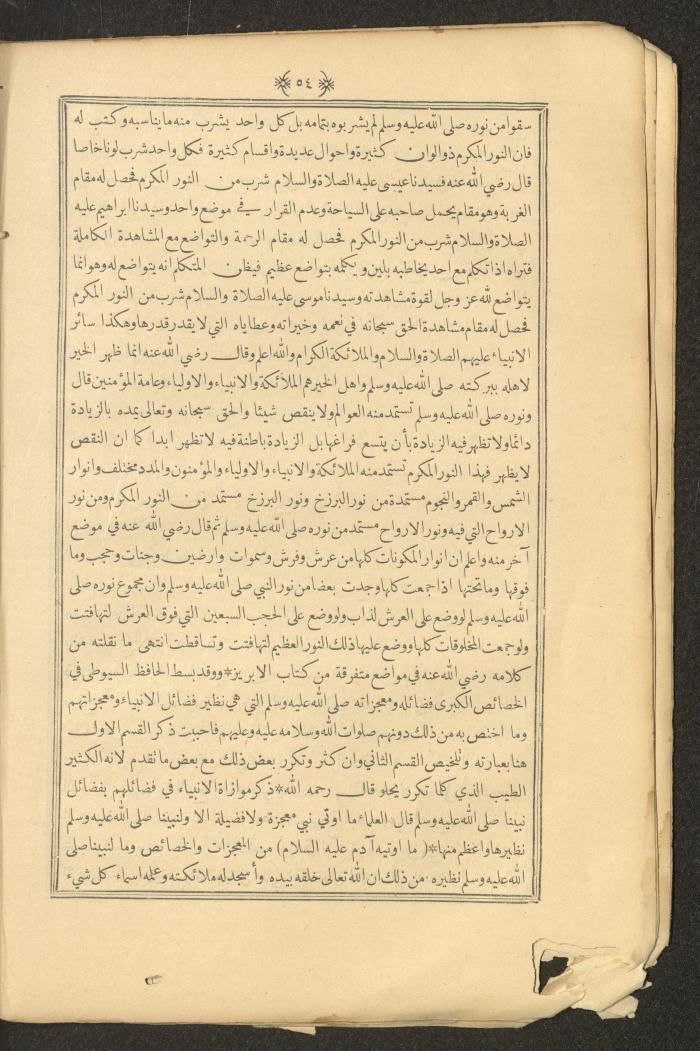 ٥٤
سقوا من نوره صلى الله عليه وسلم لم يشربوه بتمامه بل كل واحد يشرب منه ما يناسبه وكتب له
فان النور المكرم ذو الوان كثيرة واحوال عديدة واقسام كثيرة فكل واحد شرب لونا خاصا
قال رضي الله عنه فسيدنا عيسى عليه الصلاة والسلام شرب من النور المكرم فحصل له مقام
الغربة وهو مقام يحمل صاحبه على السياحة وعدم القرار في موضع واحد وسيدنا ابراهيم عليه
الصلاة والسلام شرب من النور المكرم فحصل له مقام الرحمة والتواضع مع المشاهدة الكاملة
فتراه اذا تكلم مع احد يخاطبه بلين ويكلمه بتواضع عظيم فيظن المتكلم انه يتواضع له وهو انما
يتواضع لله عز وجل لقوة مشاهدته وسيدنا موسى عليه الصلاة والسلام شرب من النور المكرم
فحصل له مقام مشاهدة الحق سبحانه في نعمه وخيراته وعطاياه التي لا يقدر قدرها وهكذا سائر
الانبياء عليهم الصلاة والسلام والملائكة الكرام والله اعلم وقال رضي الله عنه انما ظهر الخير
لاهله ببركته صلى الله عليه وسلم واهل الخير هم الملائكة والانبياء والاولياء وعامة المؤمنين قال
ونوره صلى الله عليه وسلم تستمد منه العوالم ولا ينقص شيئا والحق سبحانه وتعالى يمده بالزيادة
دائما ولا تظهر فيه الزيادة بأن يتسع فراغها بل الزيادة باطنة فيه لا تظهر ابدا كما ان النقص
لا يظهر فهذا النور المكرم تستمد منه الملائكة والانبياء والاولياء والمؤمنون والمدد مختلف وانوار
الشمس والقمر والنجوم مستمدة من نور البرزخ ونور البرزخ مستمد من النور المكرم ومن نور
الارواح التي فيه ونور الارواح مستمد من نوره صلى الله عليه وسلم ثم قال رضي الله عنه في موضع
آخر منه واعلم ان انوار المكونات كلها من عرش وفرش وسموات وارضين وجنات وحجب وما
فوقها وما تحتها اذا جمعت كلها وجدت بعضا من نور النبي صلى الله عليه وسلم وان مجموع نوره صلى
الله عليه وسلم لو وضع على العرش لذاب ولو وضع على الحجب السبعين التي فوق العرش لتهافتت
ولو جمعت المخلوقات كلها ووضع عليها ذلك النور العظيم لتهافتت وتساقطت انتهى ما نقلته من
كلامه رضي الله عنه في مواضع متفرقة من كتاب الابريز * وقد بسط الحافظ السيوطي في
الخصائص الكبرى فضائله ومعجزاته صلى الله عليه وسلم التي هي نظير فضائل الانبياء ومعجزاتهم
وما اختص به من ذلك دونهم صلوات الله وسلامه عليه وعليهم فاحببت ذكر القسم الاول
هنا بعبارته وتلخيص القسم الثاني وان كثر وتكرر بعض ذلك مع بعض ما تقدم لانه الكثير
الطيب الذي كلما تكرر يحلو قال رحمه الله * ذكر موازاة الانبياء في فضائلهم بفضائل
نبينا صلى الله عليه وسلم قال العلماء ما اوتي نبي معجزة ولا فضيلة الا ولنبينا صلى الله عليه وسلم
نظيرها واعظم منها * ( ما اوتيه آدم عليه السلام ) من المعجزات والخصائص وما لنبينا صلى
الله عليه وسلم نظيره . من ذلك ان الله تعالى خلقه بيده وأسجد له ملائكته وعلمه اسماء كل شيء